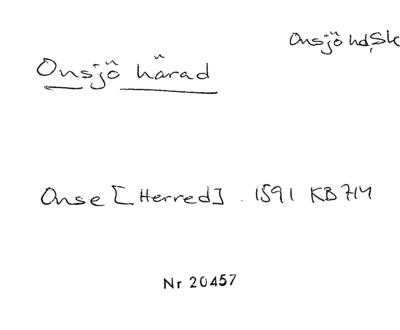 Onsjö hd, Sk
Onsjö härad
Onse [Herred] . 1591 KB 714
Nr 20457